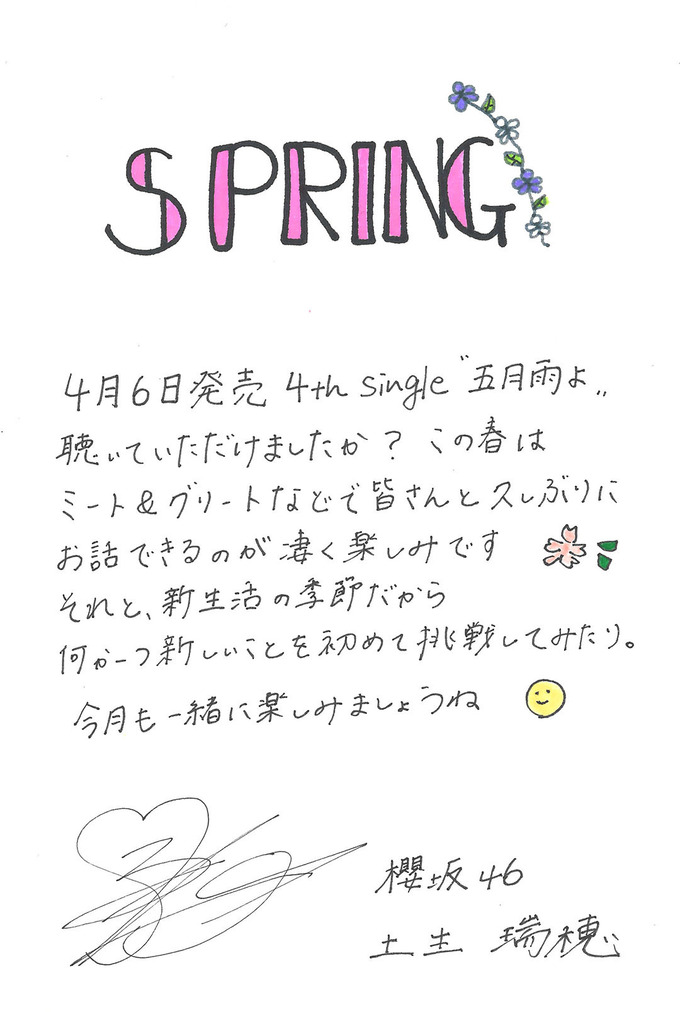 SPRING
4月6日発売 4th single〝五月雨よ〟
聴いていただけましたか？ この春は
ミート&グリートなどで皆さんと久しぶりに
お話できるのが凄く楽しみです
それと、新生活の季節だから
何か一つ新しいことを初めて挑戦してみたり。
今月も一緒に楽しみましょうね
櫻坂46
土生 瑞穂